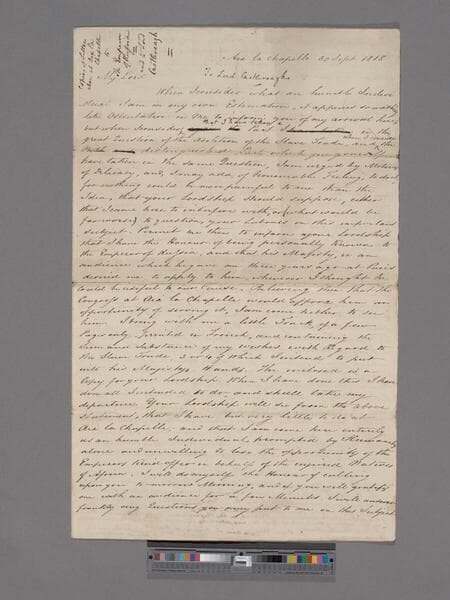 Aix la Chapelle 30 Sept. 1818
To Lord Castlereagh
My Lord
When I consider what an humble Individual
I am in my own Estimation, it appears so much
like Ostentation in me to inform you of my arrival here
but when I consider the Part I have taken in the
great Question of the Abolition of the Slave Trade, and the
Part which you yourself
have taken in the same Question, I am urged by Motives
of Delicacy, and, I may add, of honourable Feeling, to do it
for nothing could be more painful to me than the
Idea, that your Lordship should suppose, either
that I came here to interfere with, or (what would be
far worse) to question, your Labours on this important
Subject. Permit me then to inform your Lordship
that I have the Honour of being personally known to
the Emperor of Russia, and that his Majesty, in an
audience which he gave me three years ago at Paris
desired me to apply to him, whenever I thought He
could be useful to our Cause. Believing then that the
Congress at Aix la Chapelle would afford him an
opportunity of serving it, I am come hither to see
him. I bring with me a little Tract of a few
Pages only printed in French, and containing the
Sum and Substance of my wishes with regard to
the Slave Trade, 3 or 4 of which I intend to put
into his Majestys Hands. The enclosed is a
Copy for your Lordship. When I have done this I have
done all I intended to do, and shall take my
departure. Your Lordship will see from the above
Statement, that I have but very little to do at
Aix la Chapelle, and that I am come here entirely
as an humble Individual, prompted by Humanity
alone and unwilling to lose the opportunity of the
Emperors kind offer in behalf of the injured Natives
of Africa. I will do myself the Honour of calling
upon you to morrow Morning, and if you will gratify
me with an audience for a few Minutes I will answer
frankly any Questions you may put to me on this Subject.